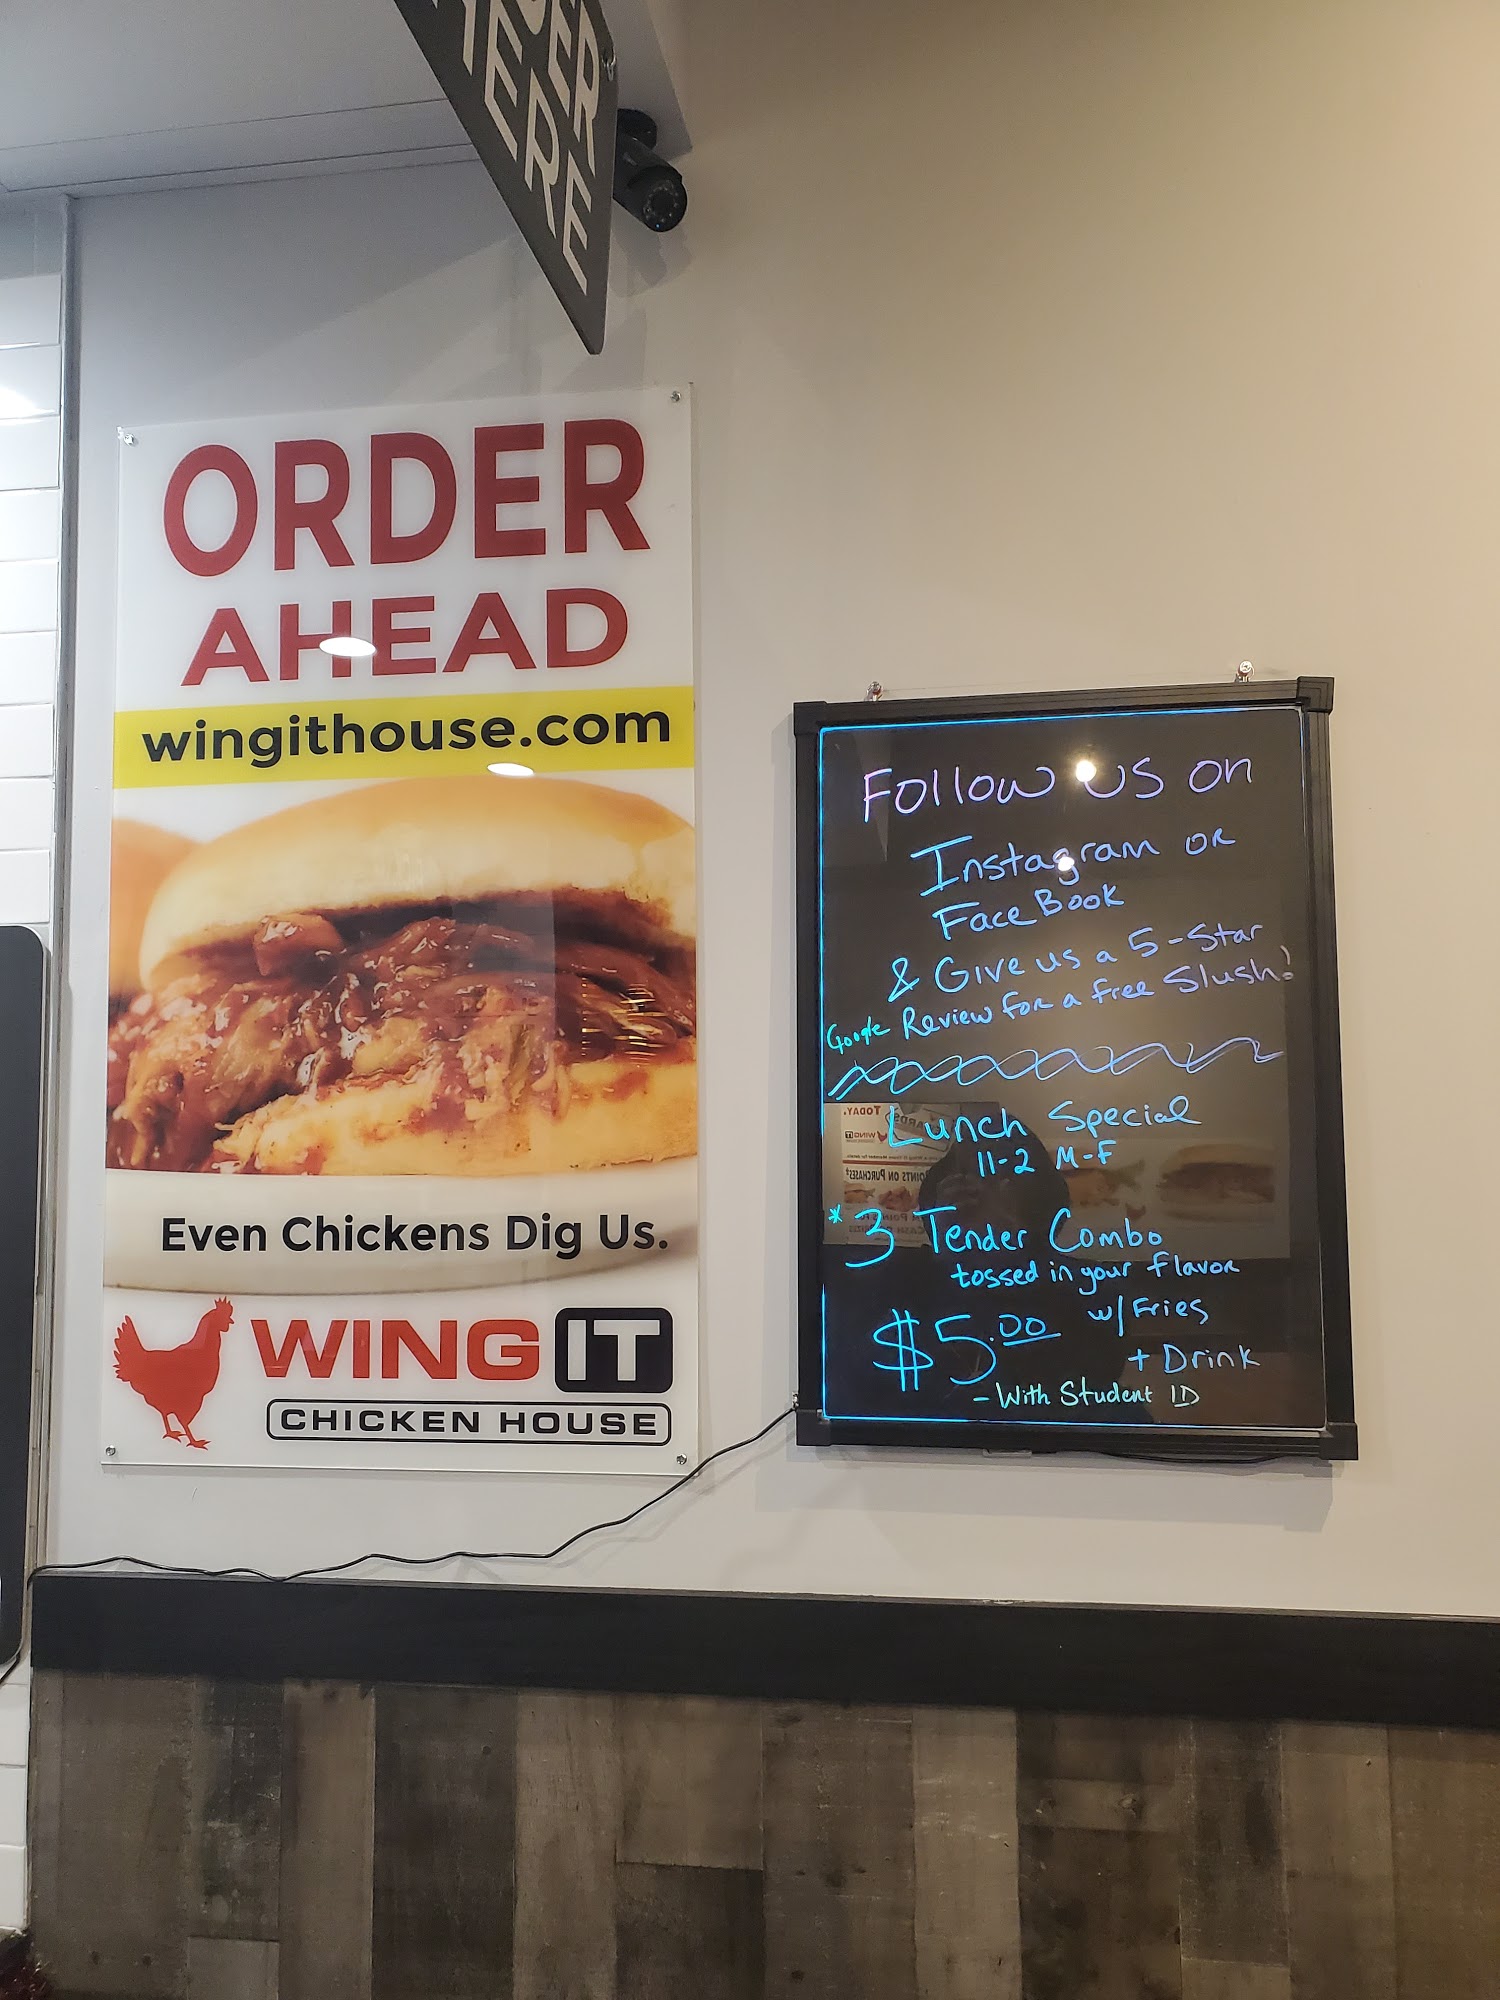 HERE
ORDER
AHEAD
wingithouse.com
Even Chickens Dig Us.
WING IT
CHICKEN HOUSE
Follow us on
Instagram or
FaceBook
& Give us a 5-Star
Google Review for a free Slush!
Lunch Special
11-2 M-F
*3 Tender Combo
tossed in your flavor
$5.00 w/Fries
+ Drink
- With Student ID